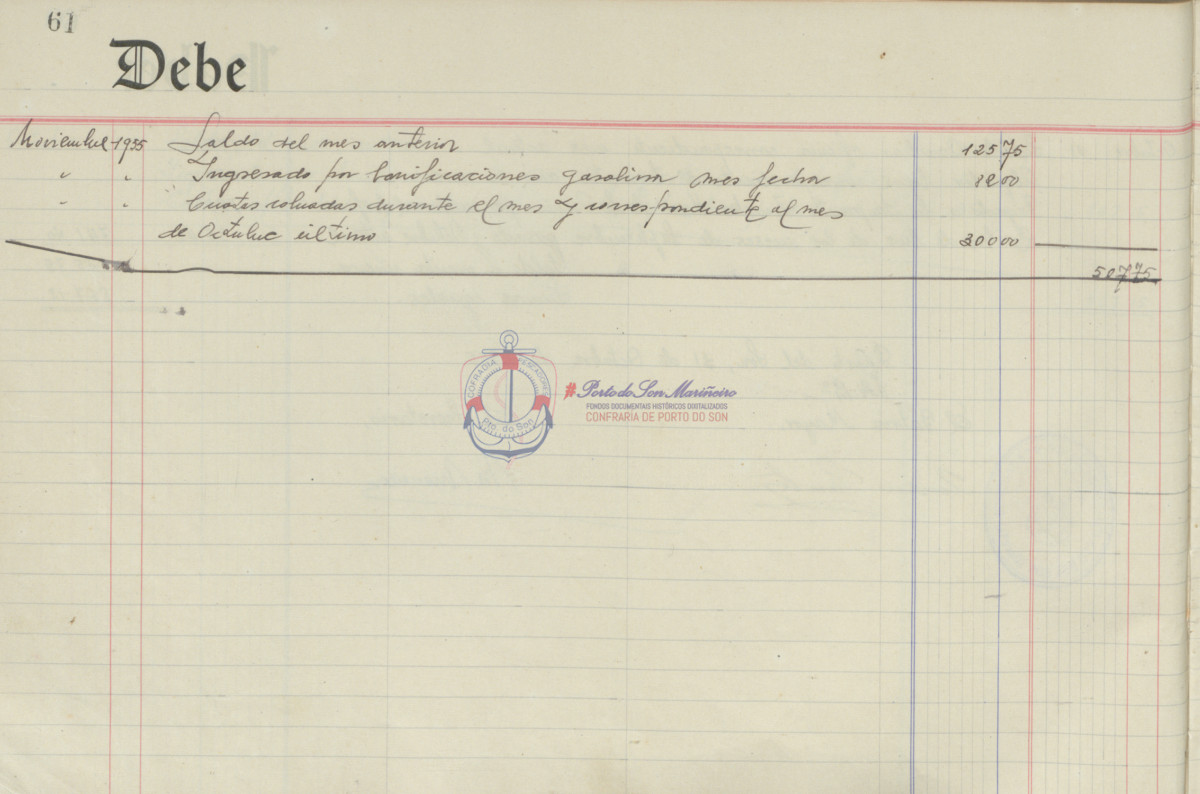 61
Debe
Noviembre 1955 Saldo del mes anterior 125 75
" " Ingresado por bonificaciones gasolina mes fecha 82 00
" " Cuotas cobradas durante el mes y correspondiente al mes
de Octubre último 300 00
507 75
COFRADIA PESCADORES
Pto. do Son
#Porto do Son Mariñeiro
FONDOS DOCUMENTAIS HISTÓRICOS DIXITALIZADOS
CONFRARIA DE PORTO DO SON